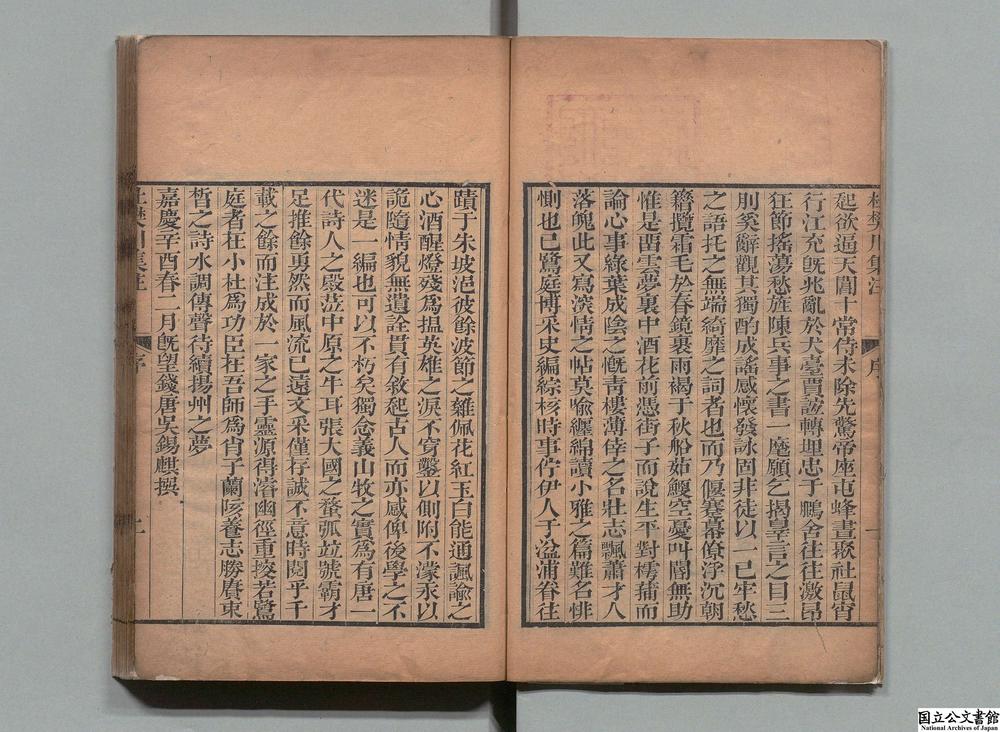 杜樊川集注 序 一
起欲逼天閽十常侍未除先驚帝座屯蜂晝聚社鼠宵
行江充旣兆亂於犬臺賈誼轉埋忠于鵩舍往往激昂
狂節搖蕩愁旌陳兵事之書一麾願乞揭辠言之目三
刖奚辭觀其獨酌成謠感懷發詠固非徒以一已牢愁
之語托之無端綺靡之詞者也而乃偃蹇幕僚浮沉朝
籍攬霜毛於春鏡裹雨褐于秋船茹鯁空憂叫閽無助
惟是罶雲夢裏中酒花前憑街子而說生平對樗蒱而
論心事綠葉成陰之慨靑樓薄倖之名壯志飄蕭才人
落魄此又寫滾情之帖莫喻纏綿讀小雅之篇難名悱
惻也已鷺庭博采史編綜核時事佇伊人于湓浦眷往
蹟于朱坡浥彼餘波節之雜佩花紅玉白能通諷諭之
心酒醒燈殘爲搵英雄之淚不穿鑿以側附不濛汞以
詭隨情貌無遺詮貫有敘起古人而亦感俾後學之不
迷是一編也可以不朽矣獨念義山牧之實爲有唐一
代詩人之殿蒞中原之牛耳張大國之蝥弧竝號霸才
足推餘勇然而風流已遠文采僅存誠不意時閱乎千
載之餘而注成於一家之手靈源得濬幽徑重掞若鷺
庭者在小杜爲功臣在吾師爲肖子蘭陔養志勝賡東
晳之詩水調傳聲待續揚州之夢
嘉慶辛酉春二月旣望錢唐吳錫麒撰
杜樊川集注 序 二
国立公文書館
National Archives of Japan